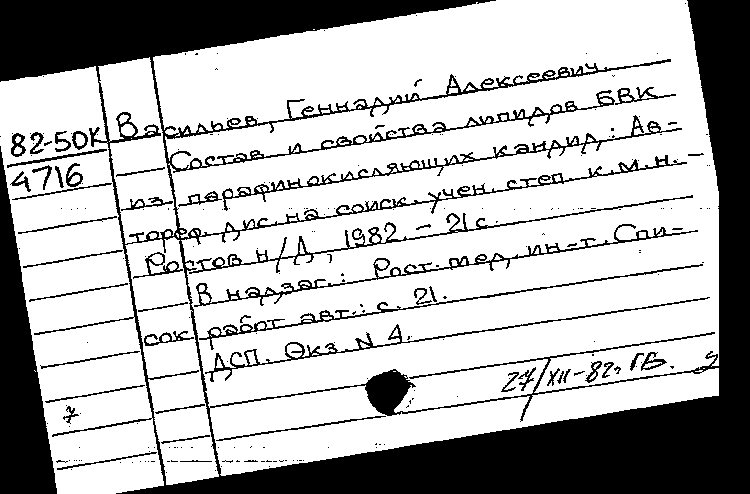 82-50К
4716
Васильев, Геннадий Алексеевич.
Состав и свойства липидов БВК
из парафинокисляющих кандид.: Ав=
тореф. дис. на соиск. учен. степ. к.м.н. -
Ростов н/Д, 1982. - 21 с.
В надзаг.: Рост. мед. ин-т. Спи=
сок работ авт.: с. 21.
ДСП. Экз. N 4.
27/XII-82. ГВ.